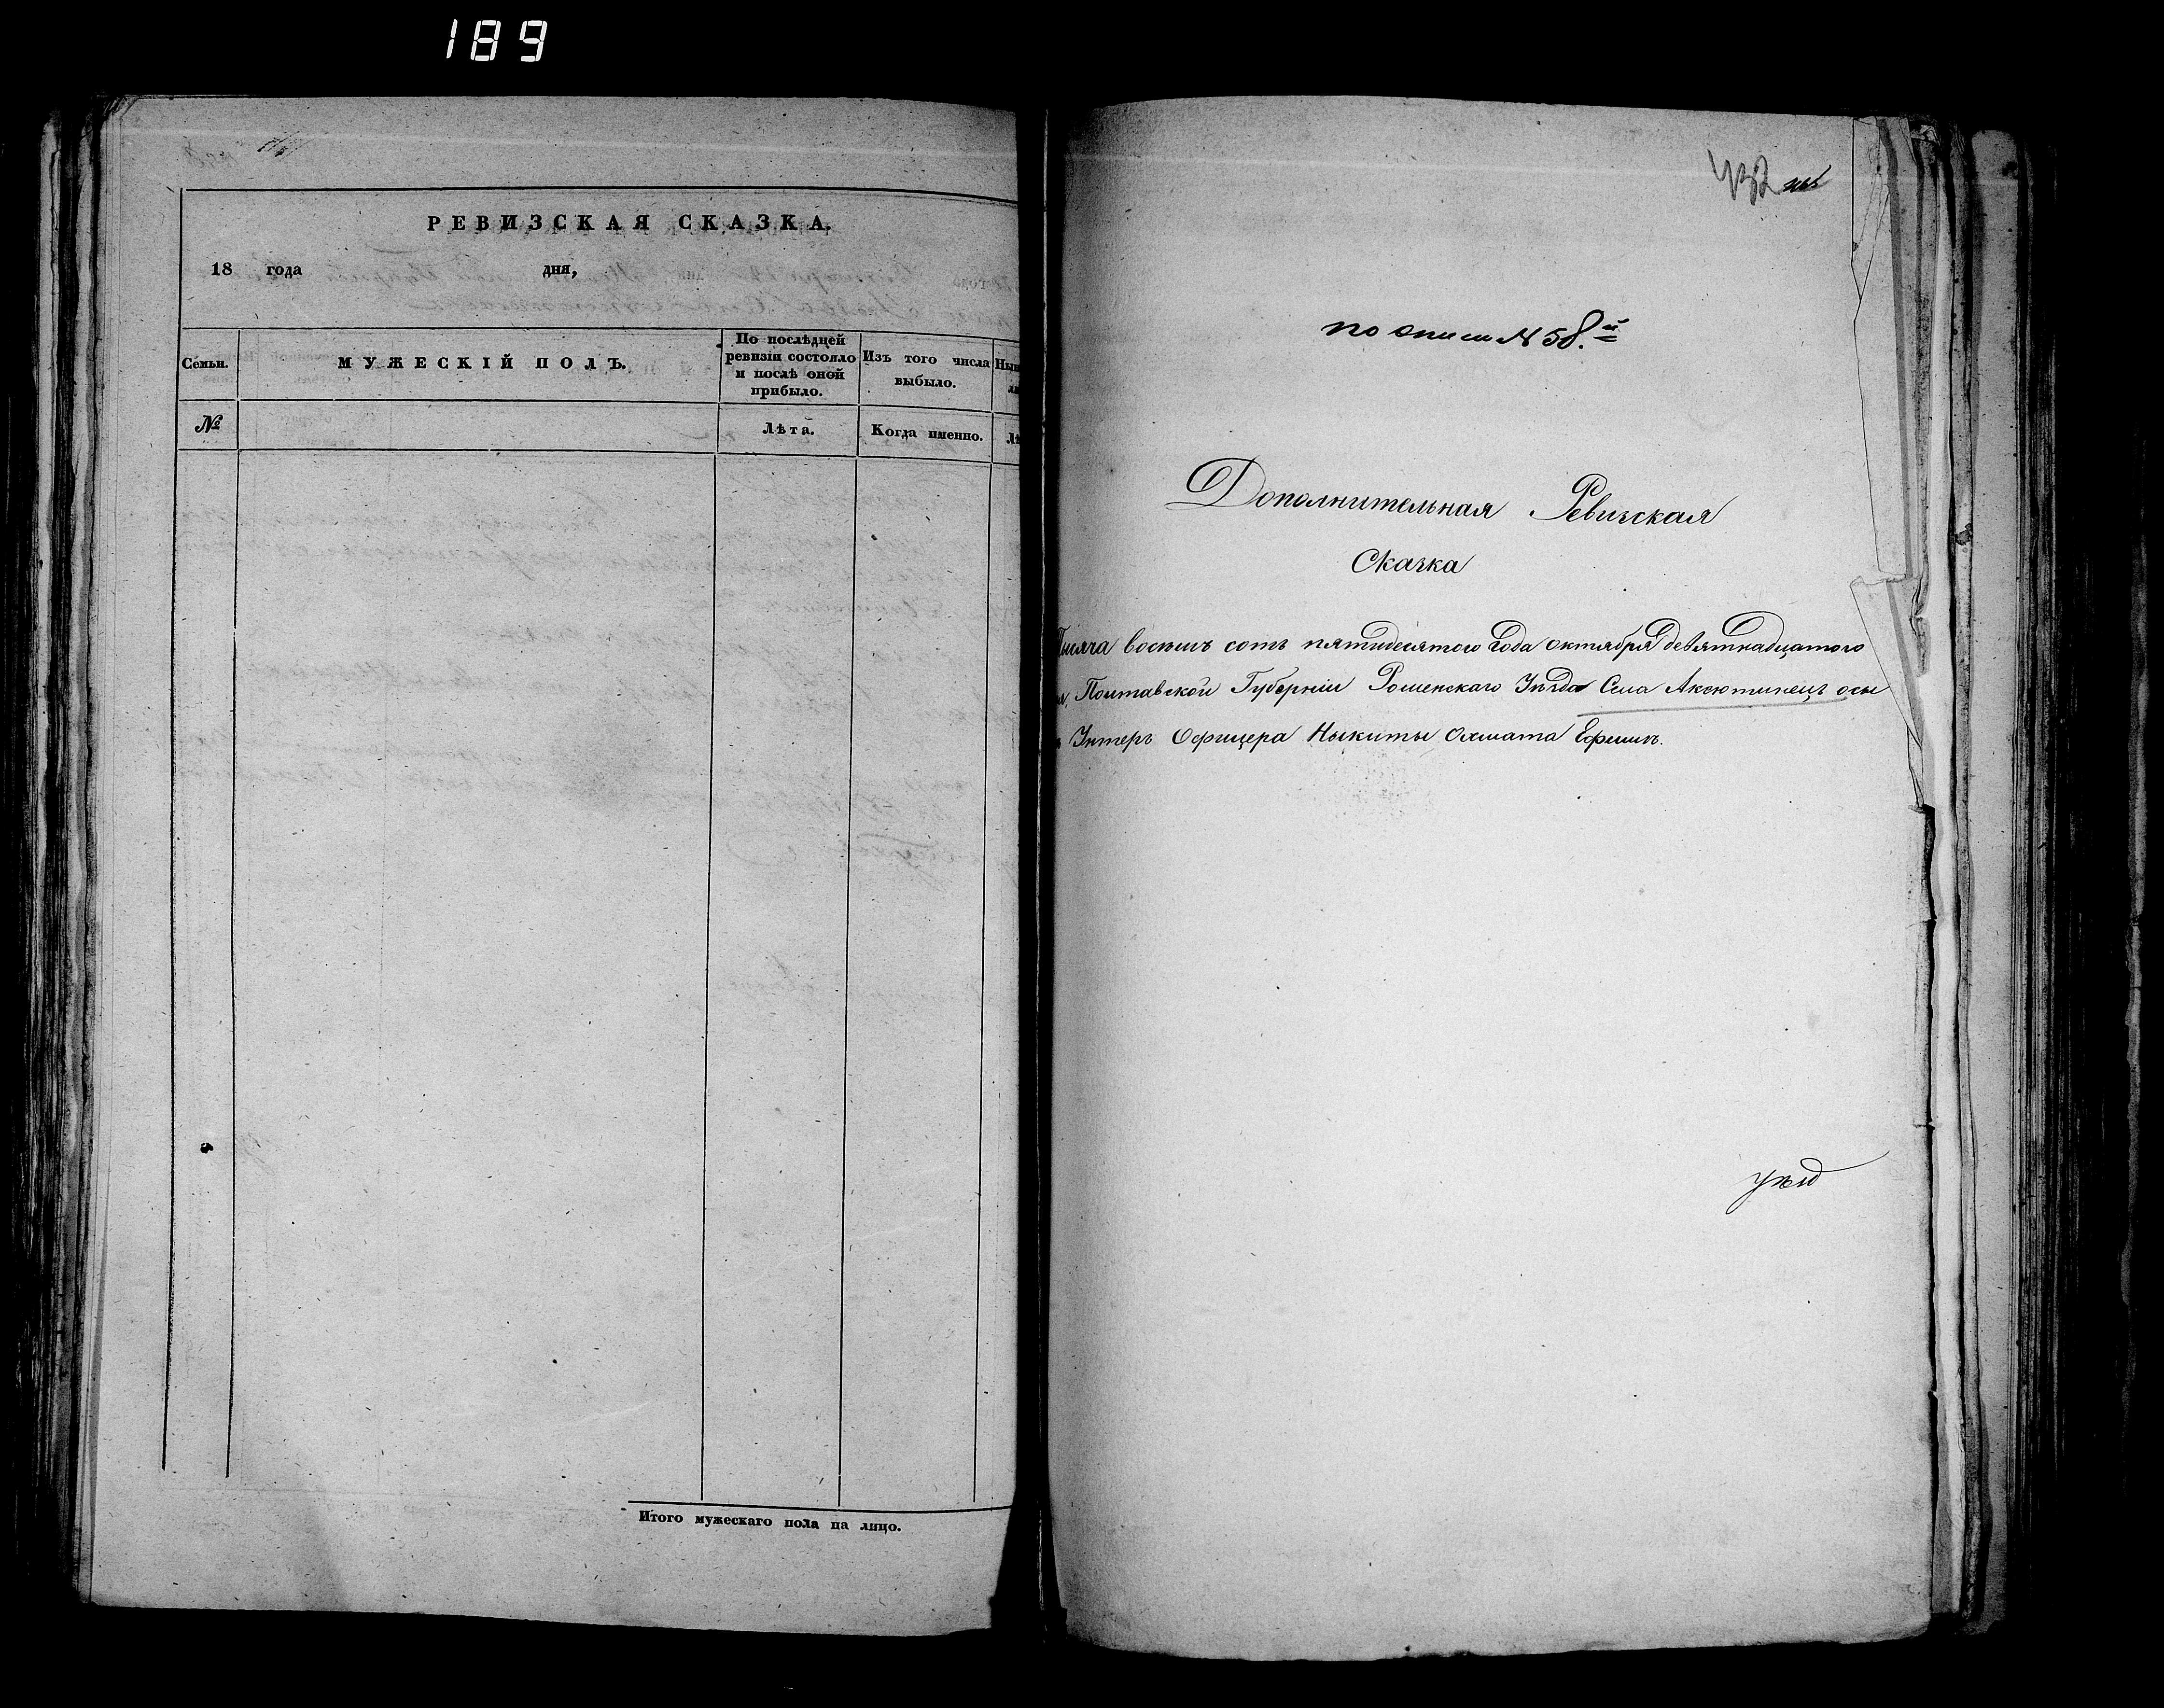 189
РЕВИЗСКАЯ СКАЗКА.
18 года дня,
Семьи. МУЖЕСКІЙ ПОЛЪ. По послѣдней ревизіи состояло и послѣ оной прибыло. Изъ того числа выбыло.
№ Лѣта. Когда именно.
Итого мужескаго пола на лицо.
432
по описи № 58.й
Дополнительная Ревизская
Сказка
Тысяча восемь сотъ пятидесятого Года октября девятнадцатого
Полтавской Губерніи Роменскаго Уѣзда Села Аксютинецъ
Унтеръ Офицера Никиты